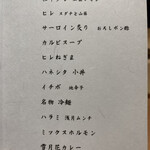 ヒレ スダチと山葵
サーロイン炙り おろしポン酢
カルビスープ
ヒレねぎま
ハネシタ 小丼
イチボ
名物 冷麺
ハラミ
ミックスホルモン
雪月花カレー